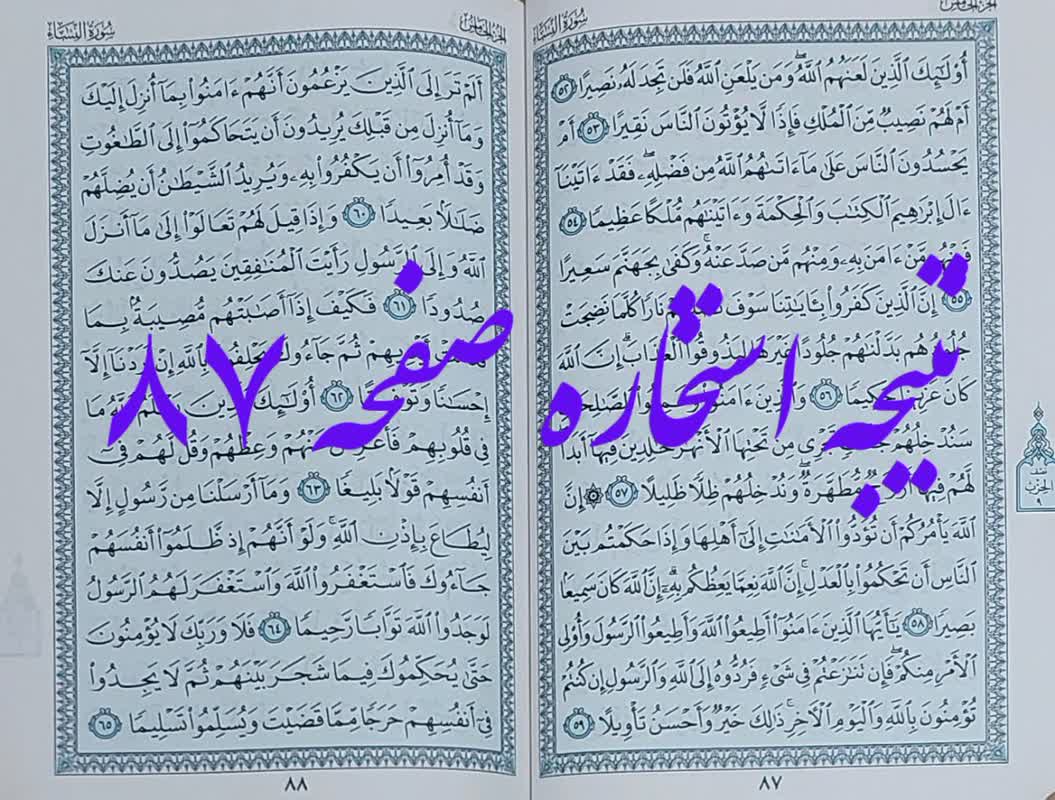 الجزء الخامس
سُورَةُ النِّسَاءِ
أُوْلَٰٓئِكَ ٱلَّذِينَ لَعَنَهُمُ ٱللَّهُۖ وَمَن يَلْعَنِ ٱللَّهُ فَلَن تَجِدَ لَهُۥ نَصِيرًا ٥٢
أَمْ لَهُمْ نَصِيبٌ مِّنَ ٱلْمُلْكِ فَإِذًا لَّا يُؤْتُونَ ٱلنَّاسَ نَقِيرًا ٥٣ أَمْ
يَحْسُدُونَ ٱلنَّاسَ عَلَىٰ مَآ ءَاتَىٰهُمُ ٱللَّهُ مِن فَضْلِهِۦۖ فَقَدْ ءَاتَيْنَآ
ءَالَ إِبْرَٰهِيمَ ٱلْكِتَٰبَ وَٱلْحِكْمَةَ وَءَاتَيْنَٰهُم مُّلْكًا عَظِيمًا ٥٤
فَمِنْهُم مَّنْ ءَامَنَ بِهِۦ وَمِنْهُم مَّن صَدَّ عَنْهُۚ وَكَفَىٰ بِجَهَنَّمَ سَعِيرًا
٥٥ إِنَّ ٱلَّذِينَ كَفَرُوا۟ بِـَٔايَٰتِنَا سَوْفَ نُصْلِيهِمْ نَارًا كُلَّمَا نَضِجَتْ
جُلُودُهُم بَدَّلْنَٰهُمْ جُلُودًا غَيْرَهَا لِيَذُوقُوا۟ ٱلْعَذَابَۗ إِنَّ ٱللَّهَ
كَانَ عَزِيزًا حَكِيمًا ٥٦ وَٱلَّذِينَ ءَامَنُوا۟ وَعَمِلُوا۟ ٱلصَّٰلِحَٰتِ
سَنُدْخِلُهُمْ جَنَّٰتٍ تَجْرِى مِن تَحْتِهَا ٱلْأَنْهَٰرُ خَٰلِدِينَ فِيهَآ أَبَدًاۖ
لَّهُمْ فِيهَآ أَزْوَٰجٌ مُّطَهَّرَةٌۖ وَنُدْخِلُهُمْ ظِلًّا ظَلِيلًا ٥٧ ۞ إِنَّ
ٱللَّهَ يَأْمُرُكُمْ أَن تُؤَدُّوا۟ ٱلْأَمَٰنَٰتِ إِلَىٰٓ أَهْلِهَا وَإِذَا حَكَمْتُم بَيْنَ
ٱلنَّاسِ أَن تَحْكُمُوا۟ بِٱلْعَدْلِۚ إِنَّ ٱللَّهَ نِعِمَّا يَعِظُكُم بِهِۦٓۗ إِنَّ ٱللَّهَ كَانَ سَمِيعًۢا
بَصِيرًا ٥٨ يَٰٓأَيُّهَا ٱلَّذِينَ ءَامَنُوٓا۟ أَطِيعُوا۟ ٱللَّهَ وَأَطِيعُوا۟ ٱلرَّسُولَ وَأُو۟لِى
ٱلْأَمْرِ مِنكُمْۖ فَإِن تَنَٰزَعْتُمْ فِى شَىْءٍ فَرُدُّوهُ إِلَى ٱللَّهِ وَٱلرَّسُولِ إِن كُنتُمْ
تُؤْمِنُونَ بِٱللَّهِ وَٱلْيَوْمِ ٱلْءَاخِرِۚ ذَٰلِكَ خَيْرٌ وَأَحْسَنُ تَأْوِيلًا ٥٩
٨٧
الحزب
٩
الجزء الخامس
سُورَةُ النِّسَاءِ
أَلَمْ تَرَ إِلَى ٱلَّذِينَ يَزْعُمُونَ أَنَّهُمْ ءَامَنُوا۟ بِمَآ أُنزِلَ إِلَيْكَ
وَمَآ أُنزِلَ مِن قَبْلِكَ يُرِيدُونَ أَن يَتَحَاكَمُوٓا۟ إِلَى ٱلطَّٰغُوتِ
وَقَدْ أُمِرُوٓا۟ أَن يَكْفُرُوا۟ بِهِۦ وَيُرِيدُ ٱلشَّيْطَٰنُ أَن يُضِلَّهُمْ
ضَلَٰلًۢا بَعِيدًا ٦٠ وَإِذَا قِيلَ لَهُمْ تَعَالَوْا۟ إِلَىٰ مَآ أَنزَلَ
ٱللَّهُ وَإِلَى ٱلرَّسُولِ رَأَيْتَ ٱلْمُنَٰفِقِينَ يَصُدُّونَ عَنكَ
صُدُودًا ٦١ فَكَيْفَ إِذَآ أَصَٰبَتْهُم مُّصِيبَةٌۢ بِمَا
قَدَّمَتْ أَيْدِيهِمْ ثُمَّ جَآءُوكَ يَحْلِفُونَ بِٱللَّهِ إِنْ أَرَدْنَآ إِلَّآ
إِحْسَٰنًا وَتَوْفِيقًا ٦٢ أُو۟لَٰٓئِكَ ٱلَّذِينَ يَعْلَمُ ٱللَّهُ مَا
فِى قُلُوبِهِمْ فَأَعْرِضْ عَنْهُمْ وَعِظْهُمْ وَقُل لَّهُمْ فِىٓ
أَنفُسِهِمْ قَوْلًۢا بَلِيغًا ٦٣ وَمَآ أَرْسَلْنَا مِن رَّسُولٍ إِلَّا
لِيُطَاعَ بِإِذْنِ ٱللَّهِۚ وَلَوْ أَنَّهُمْ إِذ ظَّلَمُوٓا۟ أَنفُسَهُمْ
جَآءُوكَ فَٱسْتَغْفَرُوا۟ ٱللَّهَ وَٱسْتَغْفَرَ لَهُمُ ٱلرَّسُولُ
لَوَجَدُوا۟ ٱللَّهَ تَوَّابًا رَّحِيمًا ٦٤ فَلَا وَرَبِّكَ لَا يُؤْمِنُونَ
حَتَّىٰ يُحَكِّمُوكَ فِيمَا شَجَرَ بَيْنَهُمْ ثُمَّ لَا يَجِدُوا۟
فِىٓ أَنفُسِهِمْ حَرَجًا مِّمَّا قَضَيْتَ وَيُسَلِّمُوا۟ تَسْلِيمًا ٦٥
٨٨
نتیجه استخاره صفحه ۸۷